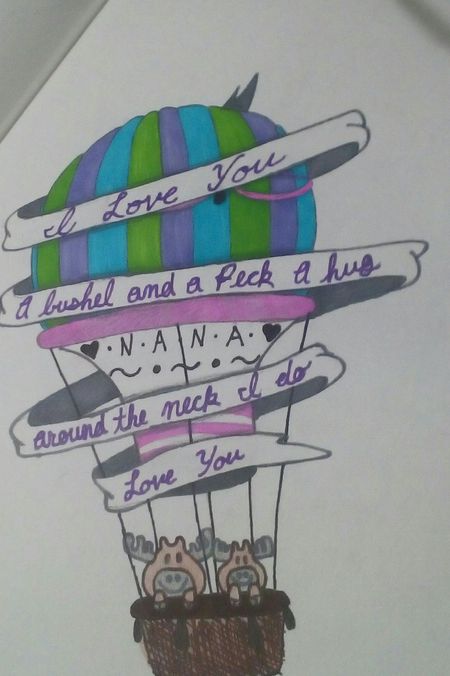 I Love You
A bushel and a Peck A hug
♥·N·A·N·A·♥
~·~·~
around the neck I do
Love You